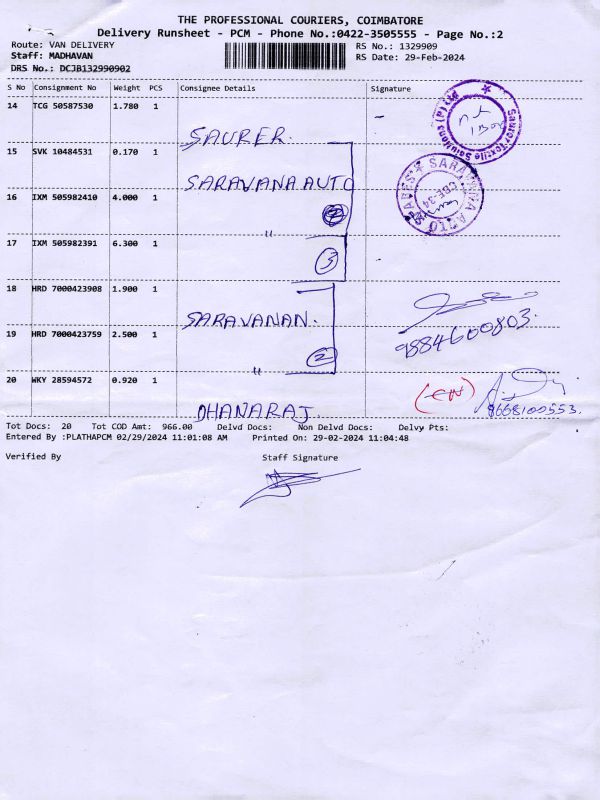 THE PROFESSIONAL COURIERS, COIMBATORE
Delivery Runsheet - PCM - Phone No.:0422-3505555 - Page No.:2
Route: VAN DELIVERY RS No.: 1329909
Staff: MADHAVAN RS Date: 29-Feb-2024
DRS No.: DCJB132990902
S No Consignment No Weight PCS Consignee Details Signature
14 TCG 50587530 1.780 1
SAURER.
Saurer Textile Solutions (P) Ltd
15 SVK 10484531 0.170 1
SARAVANA AUTO
CBE-34
16 IXM 505982410 4.000 1
2
"
17 IXM 505982391 6.300 1
3
18 HRD 7000423908 1.900 1
SARAVANAN.
9884600803.
19 HRD 7000423759 2.500 1
2
"
20 WKY 28594572 0.920 1
DHANARAJ.
8668100553.
Tot Docs: 20 Tot COD Amt: 966.00 Delvd Docs: Non Delvd Docs: Delvy Pts:
Entered By :PLATHAPCM 02/29/2024 11:01:08 AM Printed On: 29-02-2024 11:04:48
Verified By Staff Signature